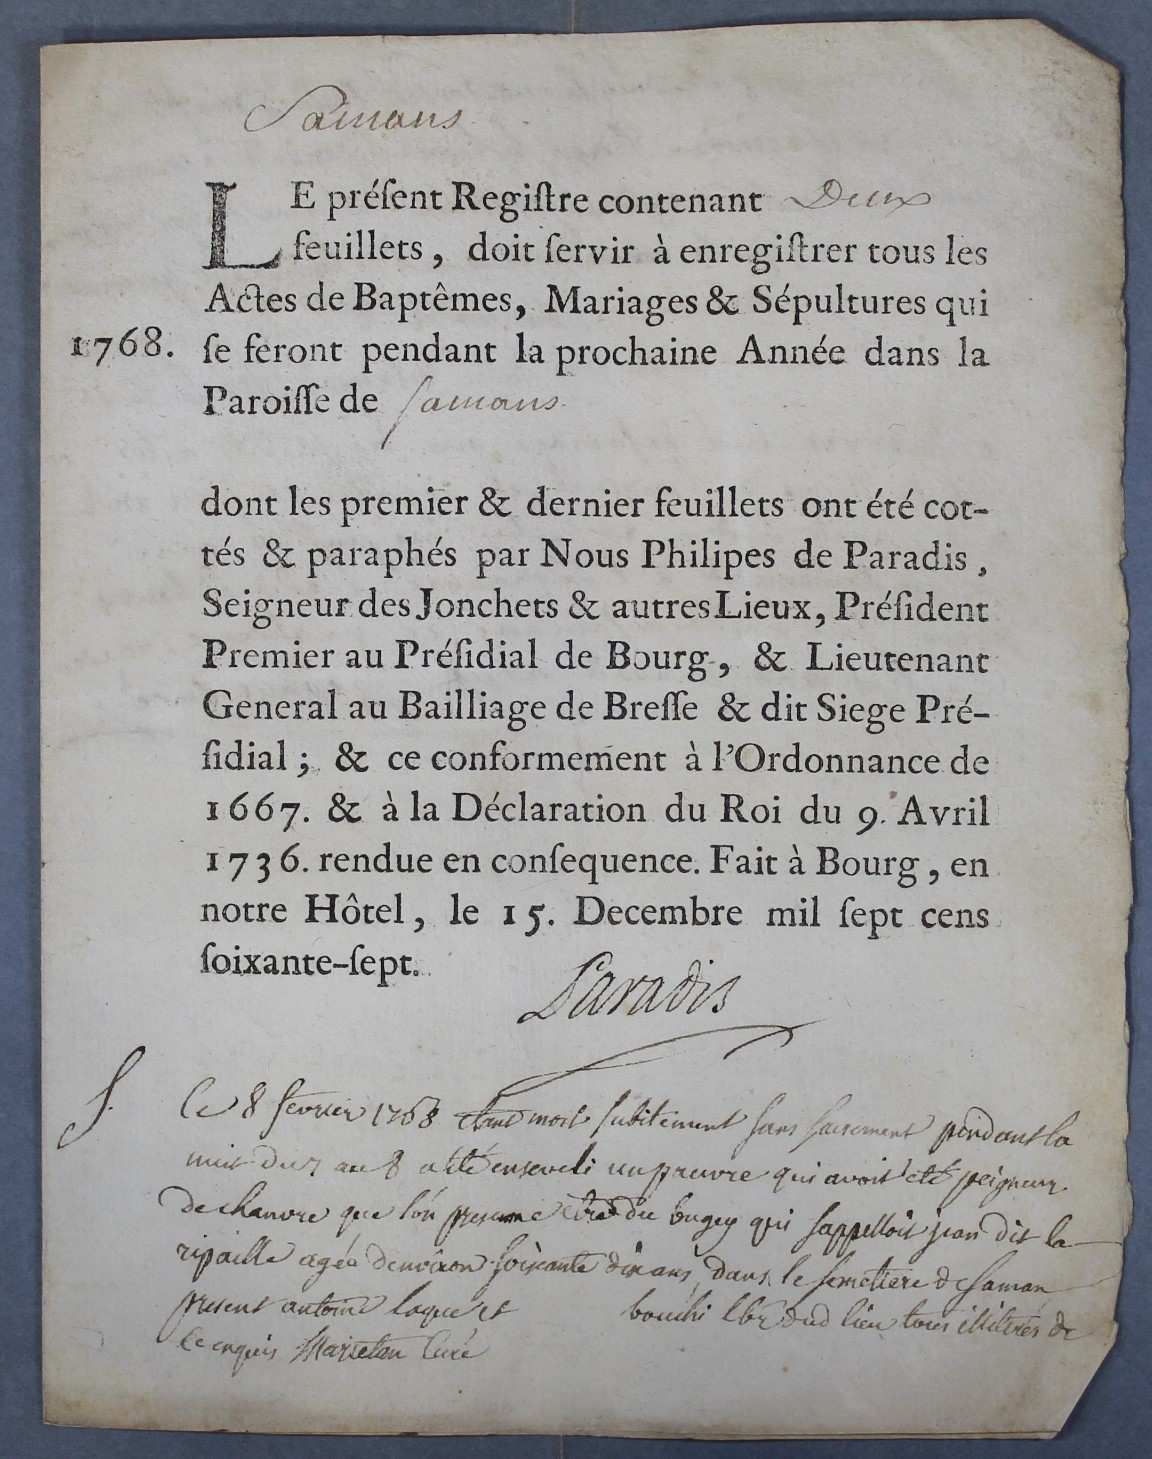 Samans
LE préſent Regiſtre contenant Deux
feuillets, doit ſervir à enregiſtrer tous les
Actes de Baptêmes, Mariages & Sépultures qui
1768. ſe feront pendant la prochaine Année dans la
Paroiſſe de Samans
dont les premier & dernier feuillets ont été cot-
tés & paraphés par Nous Philipes de Paradis,
Seigneur des Jonchets & autres Lieux, Préſident
Premier au Préſidial de Bourg, & Lieutenant
General au Bailliage de Breſſe & dit Siege Pré-
ſidial; & ce conformement à l'Ordonnance de
1667. & à la Déclaration du Roi du 9. Avril
1736. rendue en conſequence. Fait à Bourg, en
notre Hôtel, le 15. Decembre mil ſept cens
ſoixante-ſept.
Paradis
S. Ce 8 fevrier 1768 étant mort subitement sans pendant la
nuit du 7 au 8 a été enseveli un pauvre qui avoit eté peigneur
de chanvre que l'on presume etre du bugey qui sappelloit jean dit la
ripaille agée denviron soixante dix ans, dans le semetiere de saman
present antoine laque et bouchi dud lieu tous illiterés de
ce enquis Marieton Curé